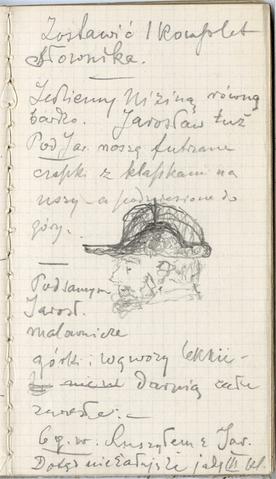 Zostawić 1 komplet
słownika.
Jedziemy niziną równą
bardzo. Jarosław tuż
Pod Jar. noszą futrzane
czapki z klapkami na
uszy – a podwiązane do
góry. –
Pod samym
Jarosł.
malownicze
górki i wąwozy lekkie –
Darnią całe
zarosłe. –
6 g. w. Ruszyłem z Jar.
Dotąd nie żałuję że jadę III kl.